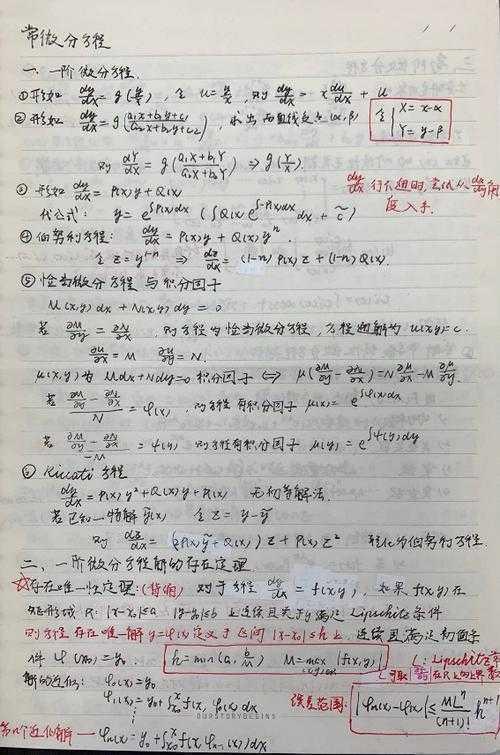 常微分方程
一. 一阶微分方程.
① 形如 dy/dx = g(y/x), 令 u = y/x, 则 dy/dx = x du/dx + u
② 形如 dy/dx = g((a₁x+b₁y+c₁)/(a₂x+b₂y+c₂)), 求出两直线交点(α,β) 令 { X = x-α
Y = y-β
则 dY/dX = g((a₁X+b₁Y)/(a₂X+b₂Y)) ⇒ g(Y/X).
③ 形如 dy/dx = P(x)y + Q(x) dy/dx 行不通时, 尝试从 dx/dy 角
度入手.
代公式: y = e^∫P(x)dx (∫Q(x) e^-∫P(x)dx dx + c̃)
④ 伯努利方程: dy/dx = P(x)y + Q(x)yⁿ.
令 z = y^1-n ⇒ dz/dx = (1-n)P(x)z + (1-n)Q(x).
⑤ 恰当微分方程 与积分因子
M(x,y)dx + N(x,y)dy = 0
若 ∂M/∂y = ∂N/∂x 则方程为恰当微分方程, 方程通解为 u(x,y)=c.
∂u/∂x = M ∂u/∂y = N.
μ(x,y)为 Mdx+Ndy=0 积分因子 ⇔ μ(∂M/∂y - ∂N/∂x) = N ∂μ/∂x - M ∂μ/∂y.
若 (∂M/∂y - ∂N/∂x)/N = φ(x), 则方程有积分因子 μ(x) = e^∫φ(x)dx
若 (∂M/∂y - ∂N/∂x)/-M = ψ(y) 则方程有积分因子 μ(y) = e^∫ψ(y)dy
⑥ Riccati 方程
dy/dx = P(x)y² + Q(x)y + R(x) 无初等解法.
若已知一特解 ỹ(x) 令 z = y-ỹ
则 dz/dx = (2P(x)ỹ + Q(x))z + P(x)z² 转化为伯努利方程.
二、一阶微分方程解的存在定理
☆存在唯一性定理:(背诵) 对于方程 dy/dx = f(x,y), 如果 f(x,y) 在
矩形域 R: |x-x₀|≤a |y-y₀|≤b 上连续且关于y满足 Lipschitz 条件
则方程存在唯一解 y=φ(x) 定义于区间 |x-x₀|≤h 上, 连续且满足初值条
件 φ(x₀) = y₀. h = min(a, b/M) M = max |f(x,y)| L: Lipschitz常
数
解的近似: φ₀(x) = y₀
φ₁(x) = y₀ + ∫x₀^x f(x, φ₀(x)) dx 误差范围: |φₙ(x) - φ(x)| ≤ MLⁿ/(n+1)! h^n+1
⋮
第n个近似解 — φₙ(x) = y₀ + ∫x₀^x f(x, φₙ₋₁(x)) dx
OURSTORYBEGINS